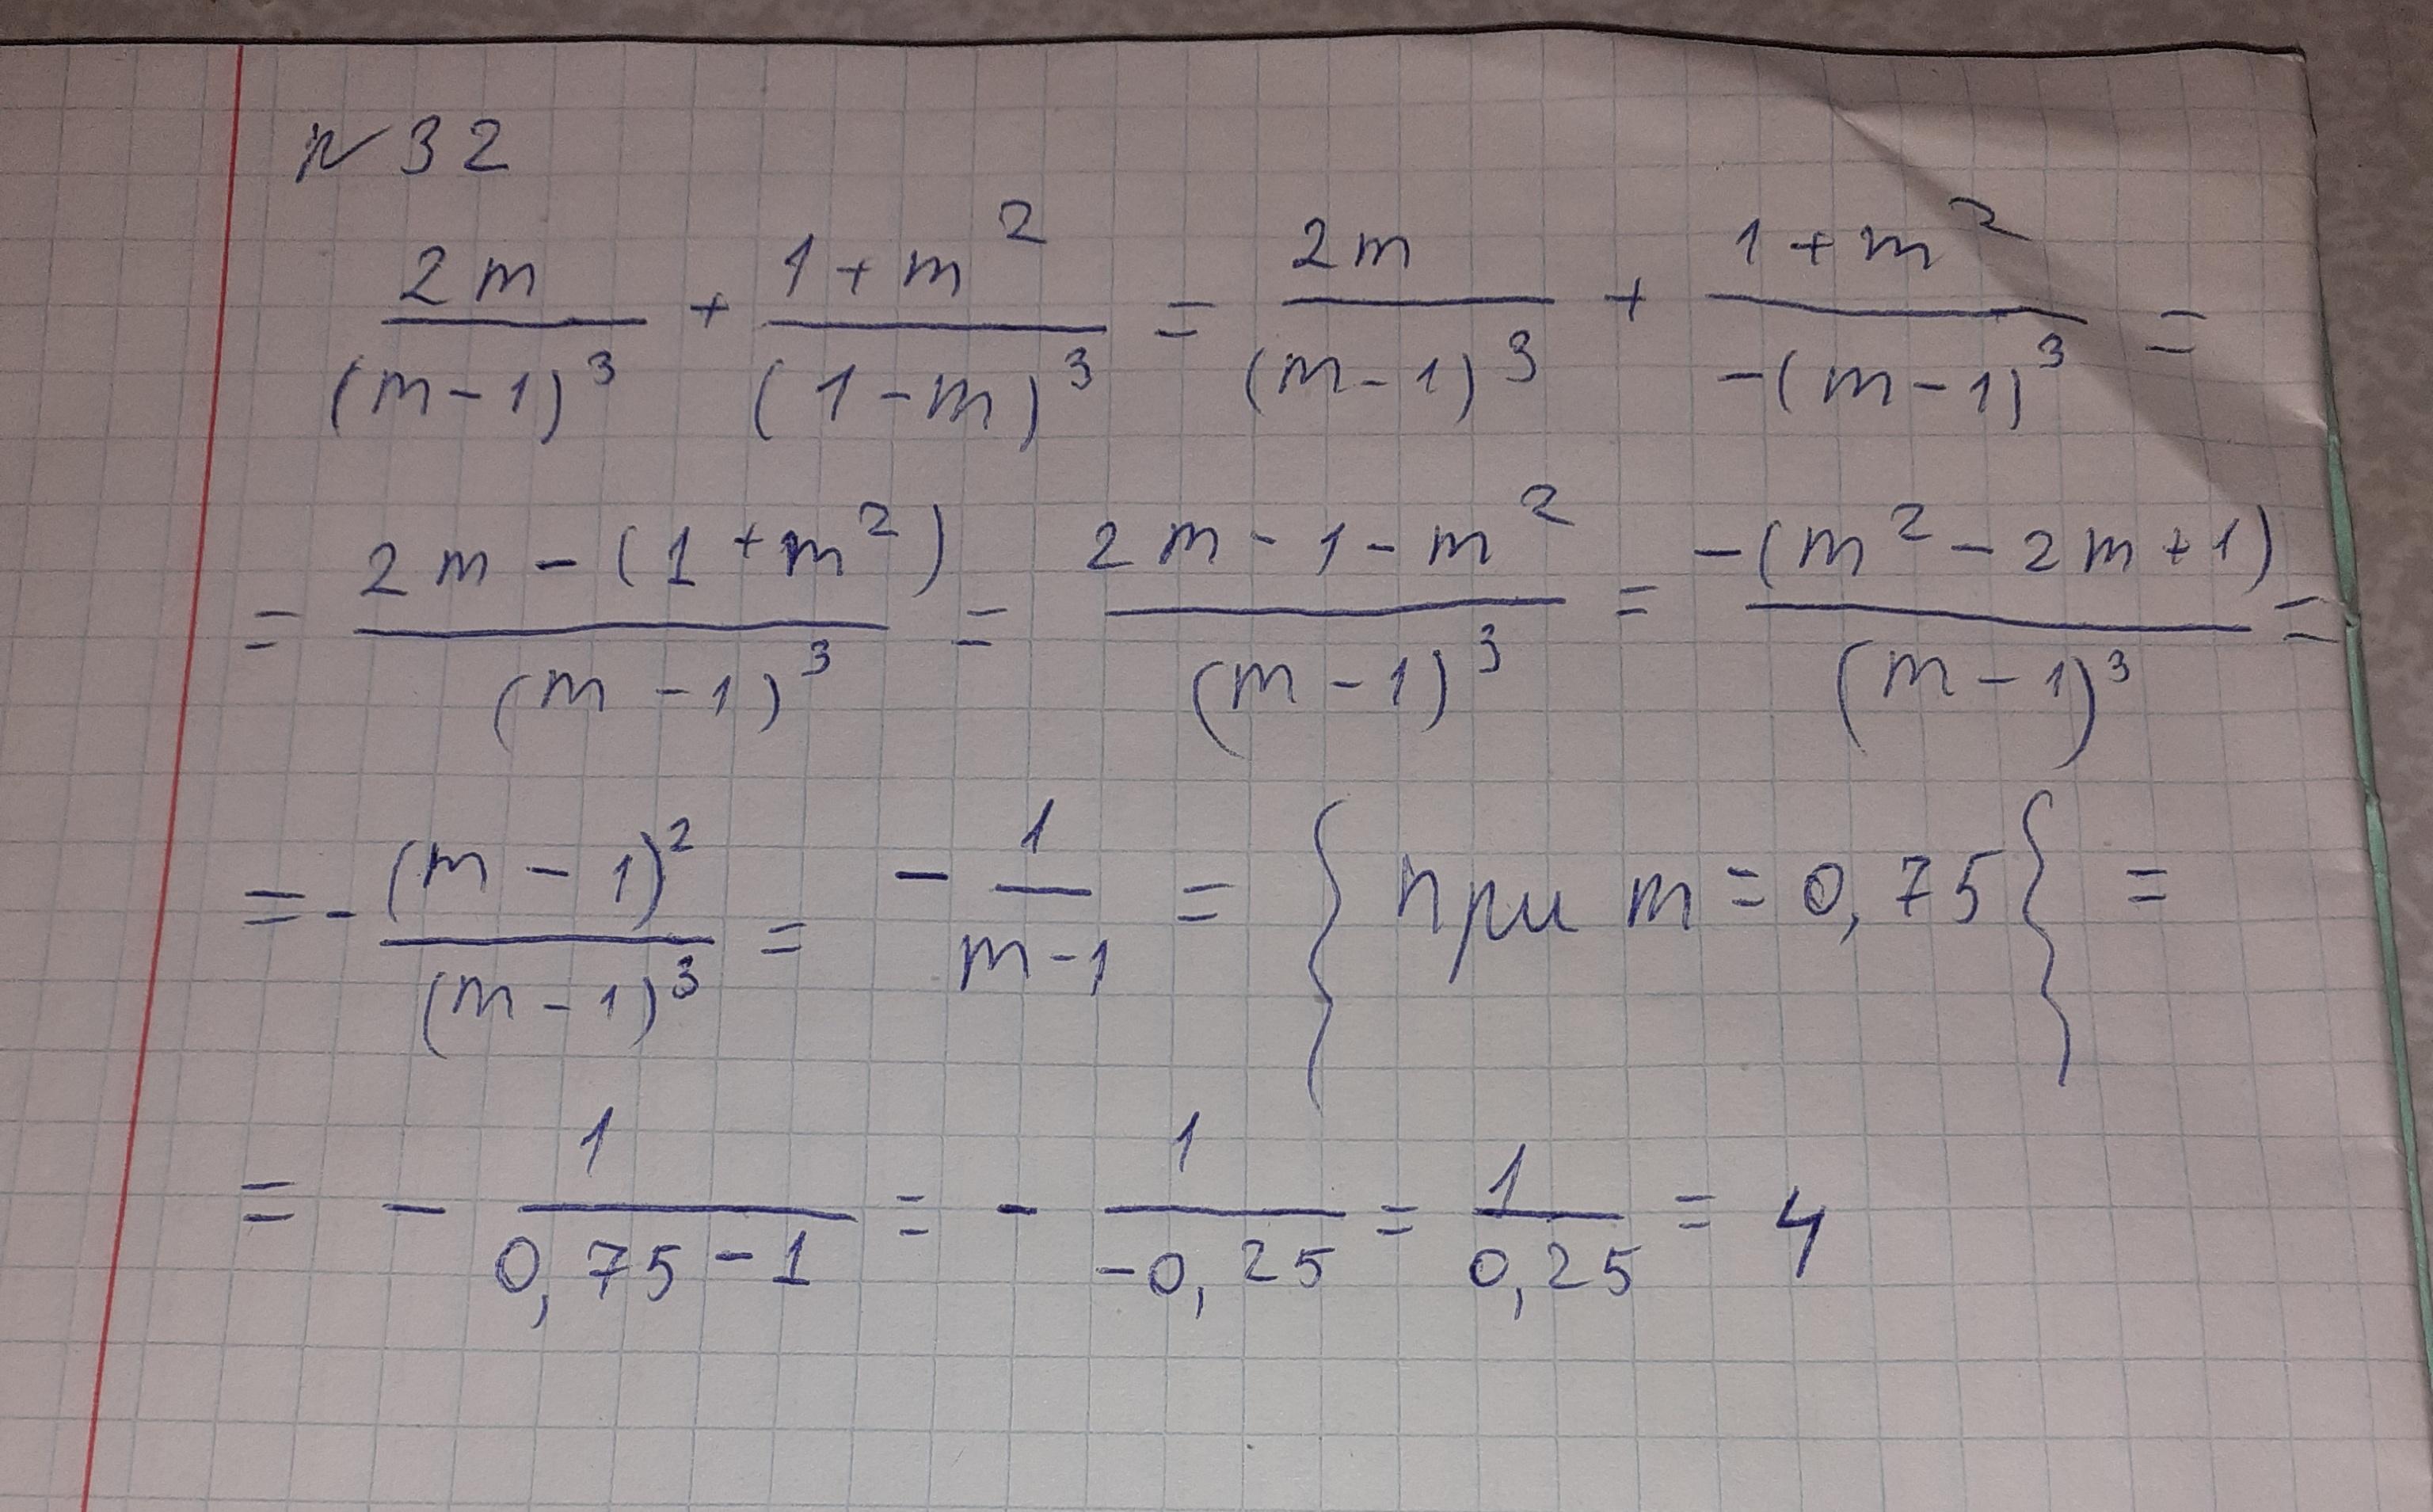 № 32
\frac{2m}{(m-1)^3} + \frac{1+m^2}{(1-m)^3} = \frac{2m}{(m-1)^3} + \frac{1+m^2}{-(m-1)^3} =
= \frac{2m-(1+m^2)}{(m-1)^3} = \frac{2m-1-m^2}{(m-1)^3} = \frac{-(m^2-2m+1)}{(m-1)^3} =
= -\frac{(m-1)^2}{(m-1)^3} = -\frac{1}{m-1} = { при m = 0,75 } =
= -\frac{1}{0,75-1} = -\frac{1}{-0,25} = \frac{1}{0,25} = 4